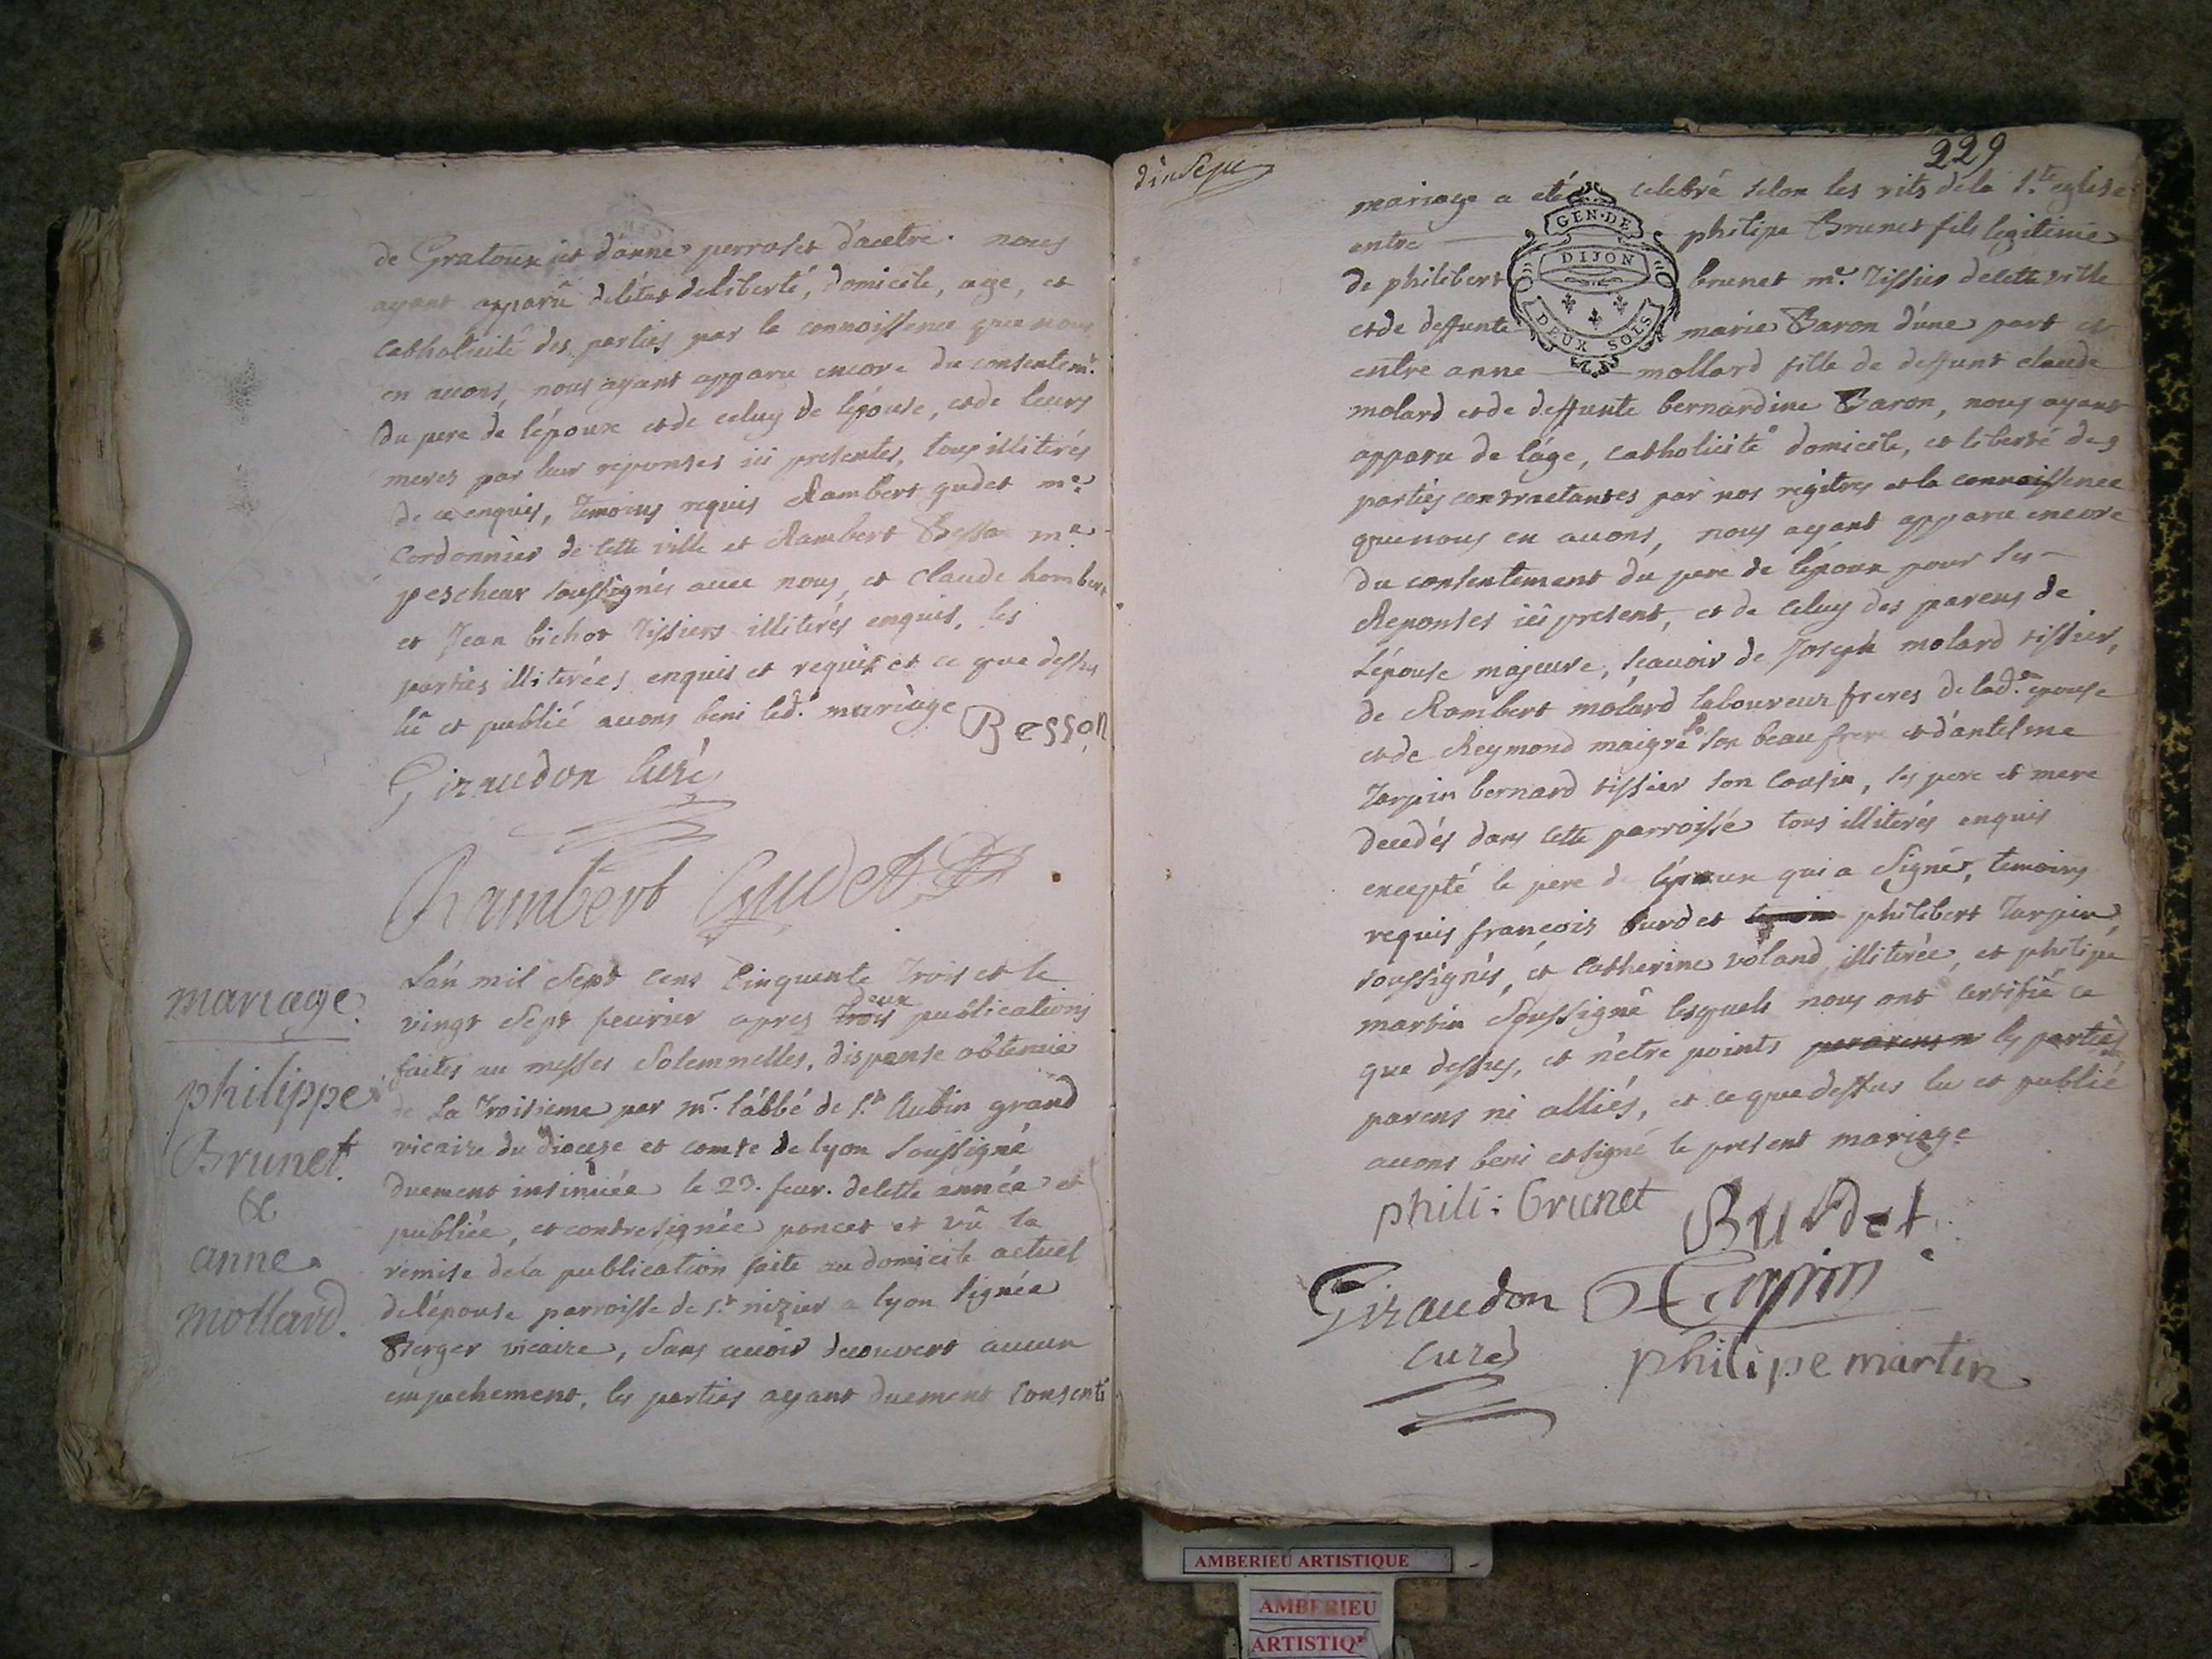 de Gratoux et d'anne perroset d'acetre. nous
ayant apparû deletat deliberté, domicile, age, et
catholicité des parties par la connoissence que nous
en auons, nous ayant apparu encore du consentem.t
du pere de l'époux et de celuy de l'épouse, et de leurs
meres par leur reponses ici presentes, tous illiterés
de ce enquis, temoins requis Rambert gudet m.e
Cordonnier de cette ville et Rambert Besson m.e
pescheur soussignés auec nous, et claude humbert
et Jean bichot Tissiers illiterés enquis, les
parties illiterées enquis et requis et ce que dessus
lû et publié auons beni led.t mariage
Besson
Giraudon Curé
Rambert Gudet
mariage
philippe
Brunet
&
anne
mollard.
L'an mil Sept cens Cinquante Trois et le
vingt Sept feurier apres Trois deux publications
faites au messes Solemnelles, dispense obtenüe
de La Troisieme par m.r l'abbé de S.t Aubin grand
vicaire du dioceze et comte de lyon soussigné
duement insinuée le 23. feur. de cette année et
publiée, et contresignée poncet et vû la
remise dela publication faite au domicile actuel
de l'épouse parroisse de S.t nizier a lyon signée
Berger vicaire, sans auoir decouvert aucun
empechement, les parties ayant duement consenti
229
mariage a eté celebré selon les rits dela S.te eglise
entre philipe Brunet fils legitime
de philibert brunet m.e Tissier decette ville
et de deffunte marie Baron d'une part et
entre anne mollard fille de deffunt claude
molard et de deffunte bernardine Baron, nous ayant
apparu de l'age, catholicité domicile, et liberté des
parties contractantes par nos régitres et la connoissence
que nous en auons, nous ayant apparu encore
du consentement du pere de l'époux pour ses
Reponses ici present, et de celuy des parens de
l'épouse majeure, scauoir de Joseph molard tissier,
de Rambert molard laboureur freres de lad.e epouse
et de Reymond maigre son beau frere et d'antelme
Tarpin bernard tissier son Cousin, les pere et mere
decedés dans cette parroisse tous illiterés enquis
excepté le pere de l'époux qui a signé, temoins
requis françois burdet philibert Tarpin
soussignés, et Catherine voland illiterée, et philipe
martin Soussigné lesquels nous ont certifié ce
que dessus, et n'etre points les parties
parens ni alliés, et ce que dessus lu et publié
auons beni et signé le present mariage
phili: brunet
Burdet
Giraudon
Curé
philipe martin
GEN·DE
DIJON
DEUX SOLS
AMBERIEU ARTISTIQUE
AMBERIEU
ARTISTIQ